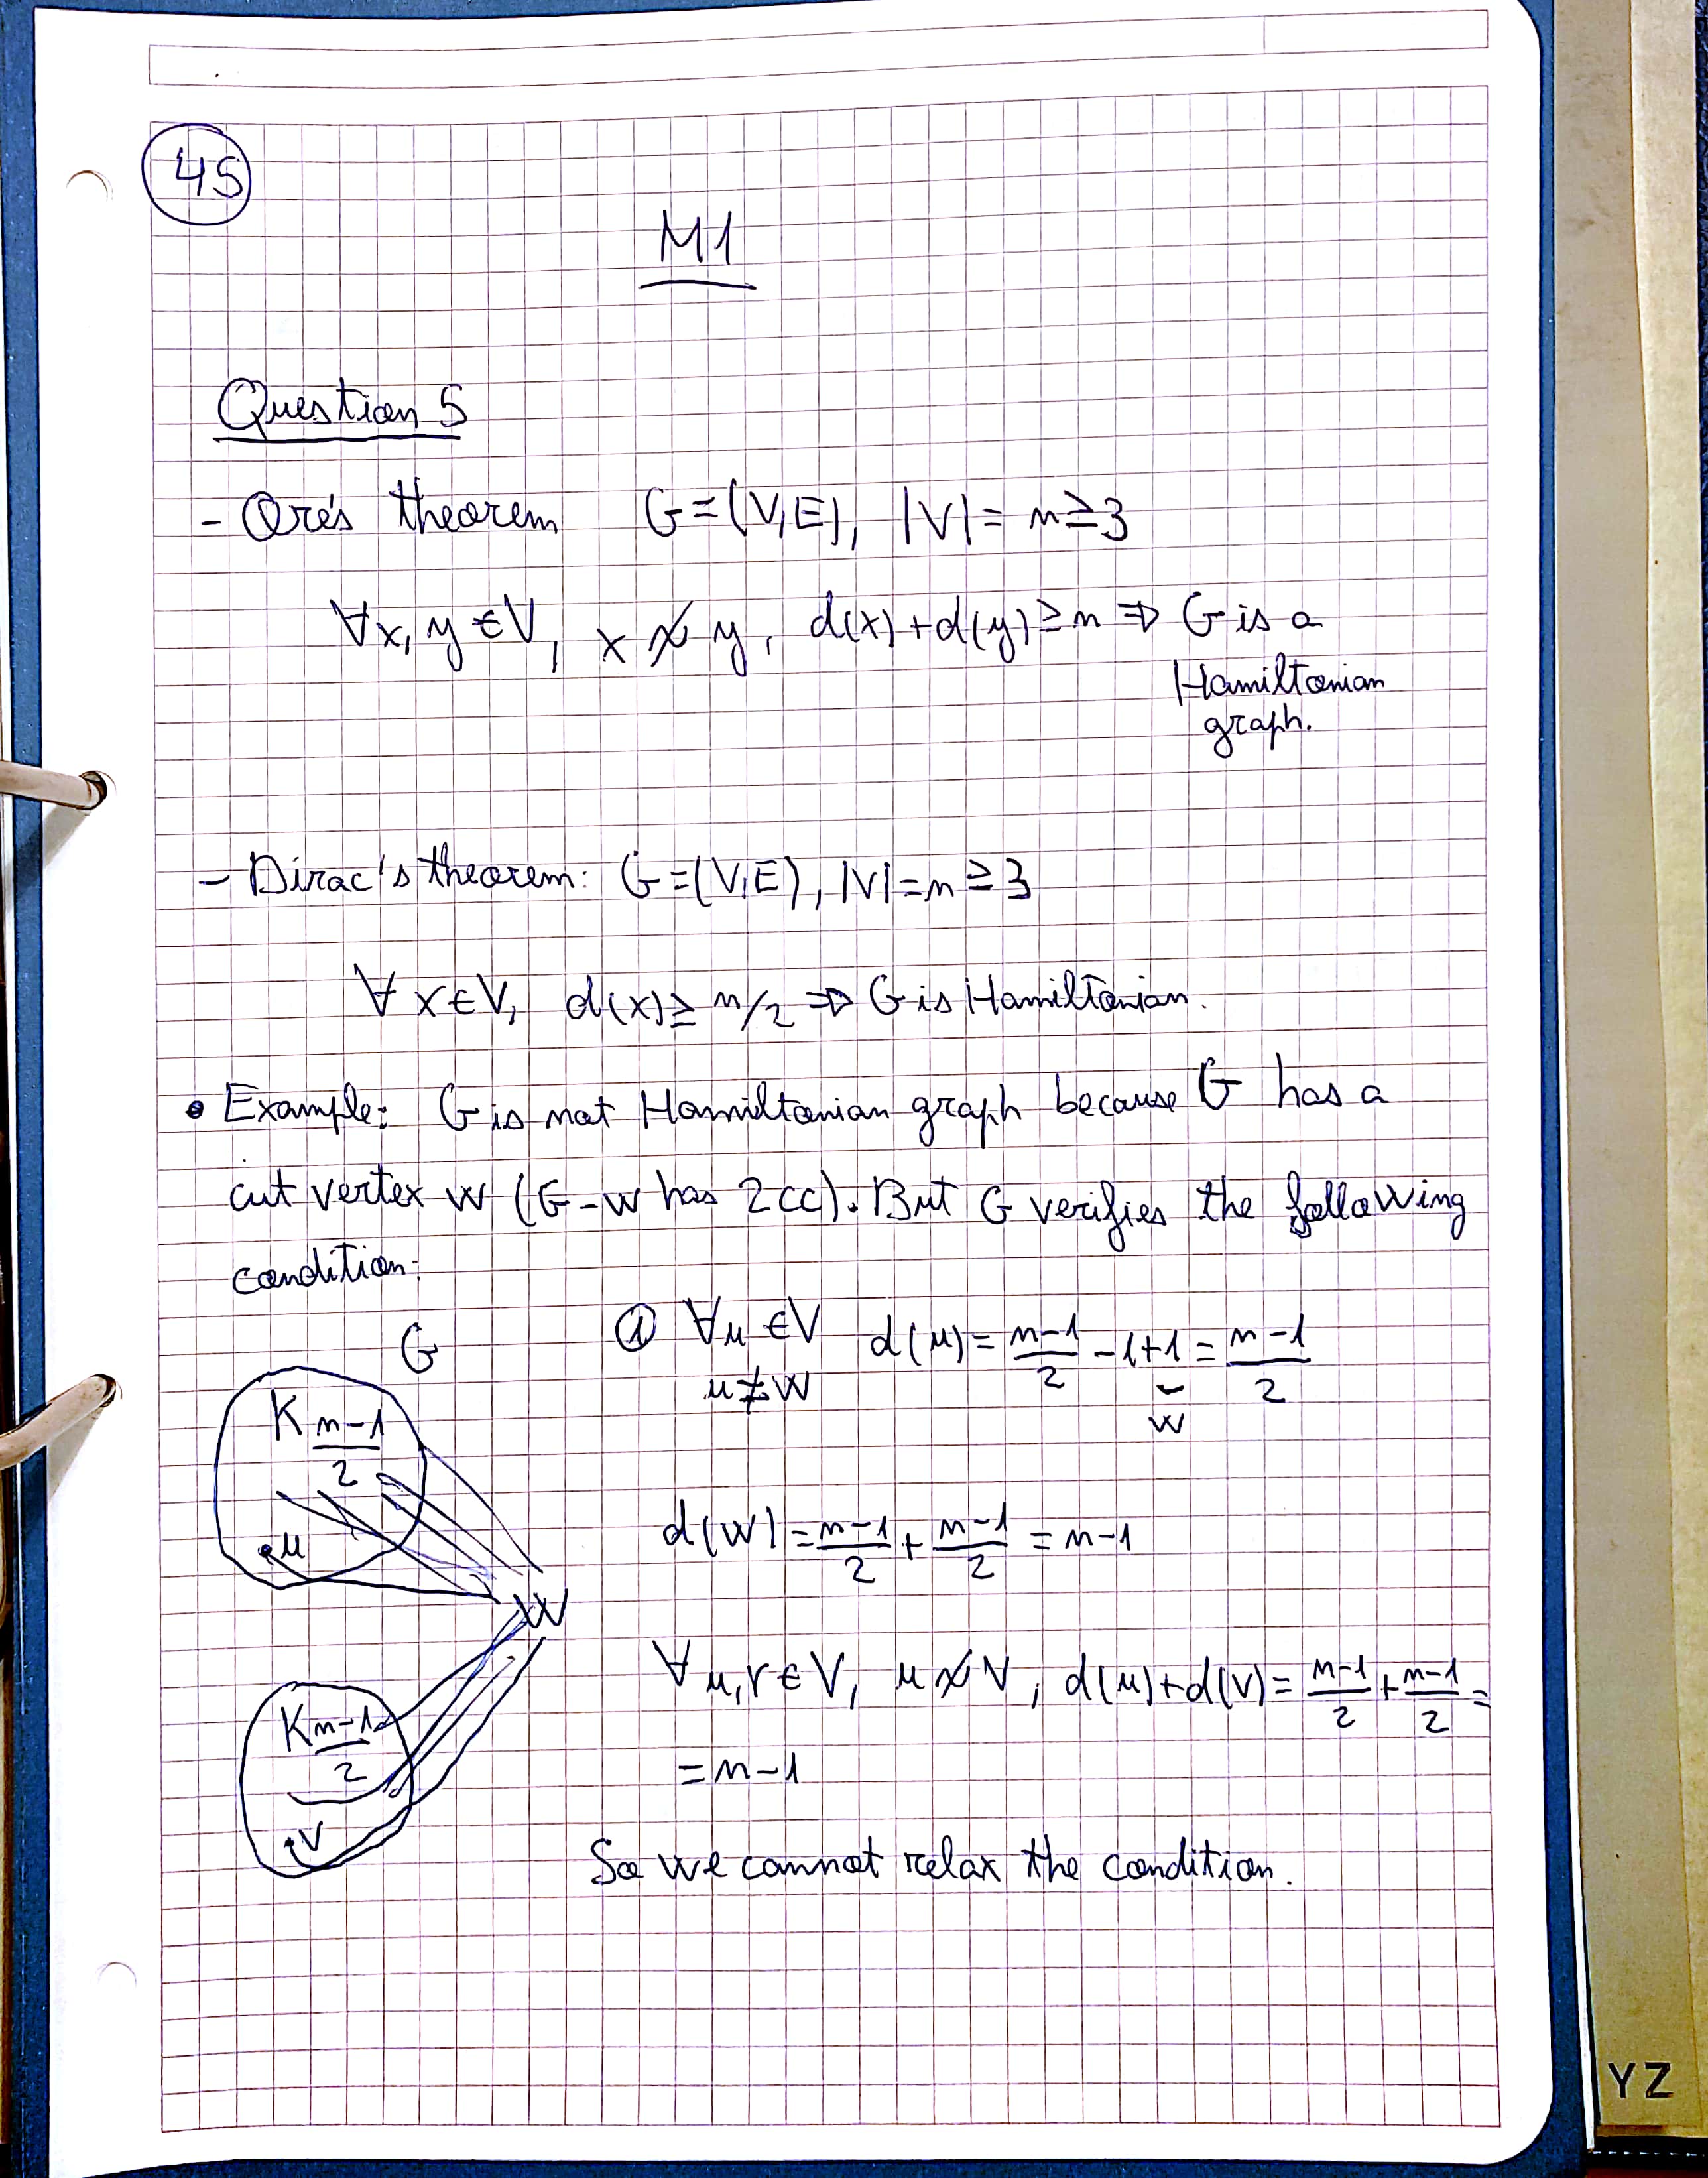 45
M1
Question 5
- Ore's theorem G=(V,E), |V|= n≥3
∀x,y∈V, x≁y, d(x)+d(y)≥n ⇒ G is a
Hamiltonian
graph.
- Dirac's theorem: G=(V,E), |V|=n≥3
∀x∈V, d(x)≥n/2 ⇒ G is Hamiltonian.
• Example: G is not Hamiltonian graph because G has a
cut vertex w (G-w has 2cc). But G verifies the following
condition:
G
① ∀u∈V d(u)= (n-1)/2 -1+1 = (n-1)/2
u≠w w
K (n-1)/2
u
d(w)= (n-1)/2 + (n-1)/2 = n-1
w
∀u,v∈V, u≁v, d(u)+d(v)= (n-1)/2 + (n-1)/2 =
K (n-1)/2
= n-1
v
So we cannot relax the condition.
YZ